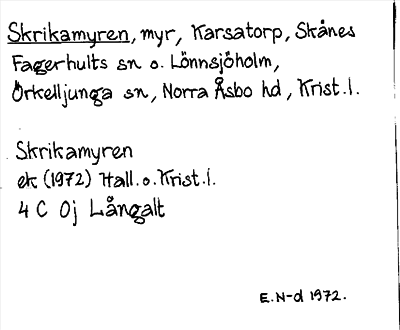 Skrikamyren, myr, Karsatorp, Skånes
Fagerhults sn o. Lönnsjöholm,
Örkelljunga sn, Norra Åsbo hd, Krist.l.
Skrikamyren
ek (1972) Hall.o.Krist.l.
4 C 0j Långalt
E.N-d 1972.